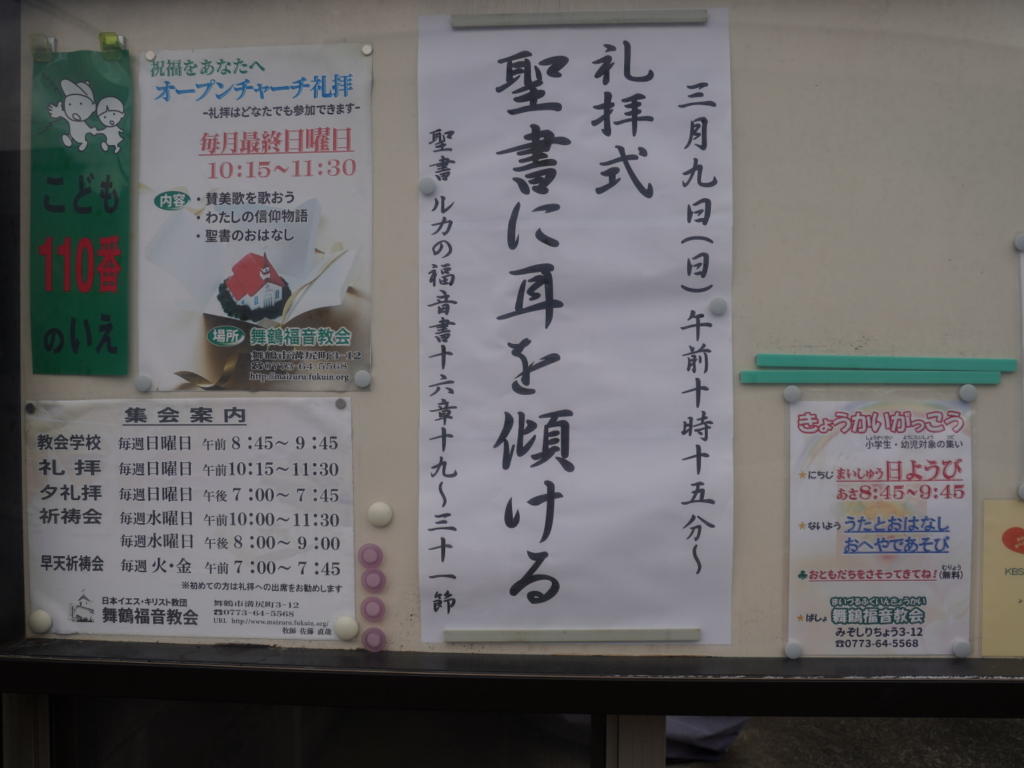 こども
110番
のいえ
祝福をあなたへ
オープンチャーチ礼拝
-礼拝はどなたでも参加できます-
毎月最終日曜日
10:15～11:30
内容
・賛美歌を歌おう
・わたしの信仰物語
・聖書のおはなし
場所
舞鶴福音教会
舞鶴市溝尻町3-12
☎0773-64-5568
http://maizuru.fukuin.org
集会案内
教会学校 毎週日曜日 午前 8:45～ 9:45
礼拝 毎週日曜日 午前10:15～11:30
夕礼拝 毎週日曜日 午後 7:00～ 7:45
祈祷会 毎週水曜日 午前10:00～11:30
毎週水曜日 午後 8:00～ 9:00
早天祈祷会 毎週 火・金 午前 7:00～ 7:45
※初めての方は礼拝への出席をお勧めします
日本イエス・キリスト教団
舞鶴福音教会
舞鶴市溝尻町3-12
☎0773-64-5568
URL http://www.maizuru.fukuin.org/
牧師 佐藤 直哉
三月九日(日)午前十時十五分～
礼拝式
聖書に耳を傾ける
聖書 ルカの福音書十六章十九～三十一節
きょうかいがっこう
小学生・幼児対象の集い
しょうがくせい ようじたいしょう つど
★にちじ まいしゅう日ようび
あさ8:45～9:45
★ないよう うたとおはなし
おへやであそび
♣おともだちをさそってきてね!(無料)
むりょう
まいづるふくいんきょうかい
★ばしょ 舞鶴福音教会
みぞしりちょう3-12
☎0773-64-5568
KBS